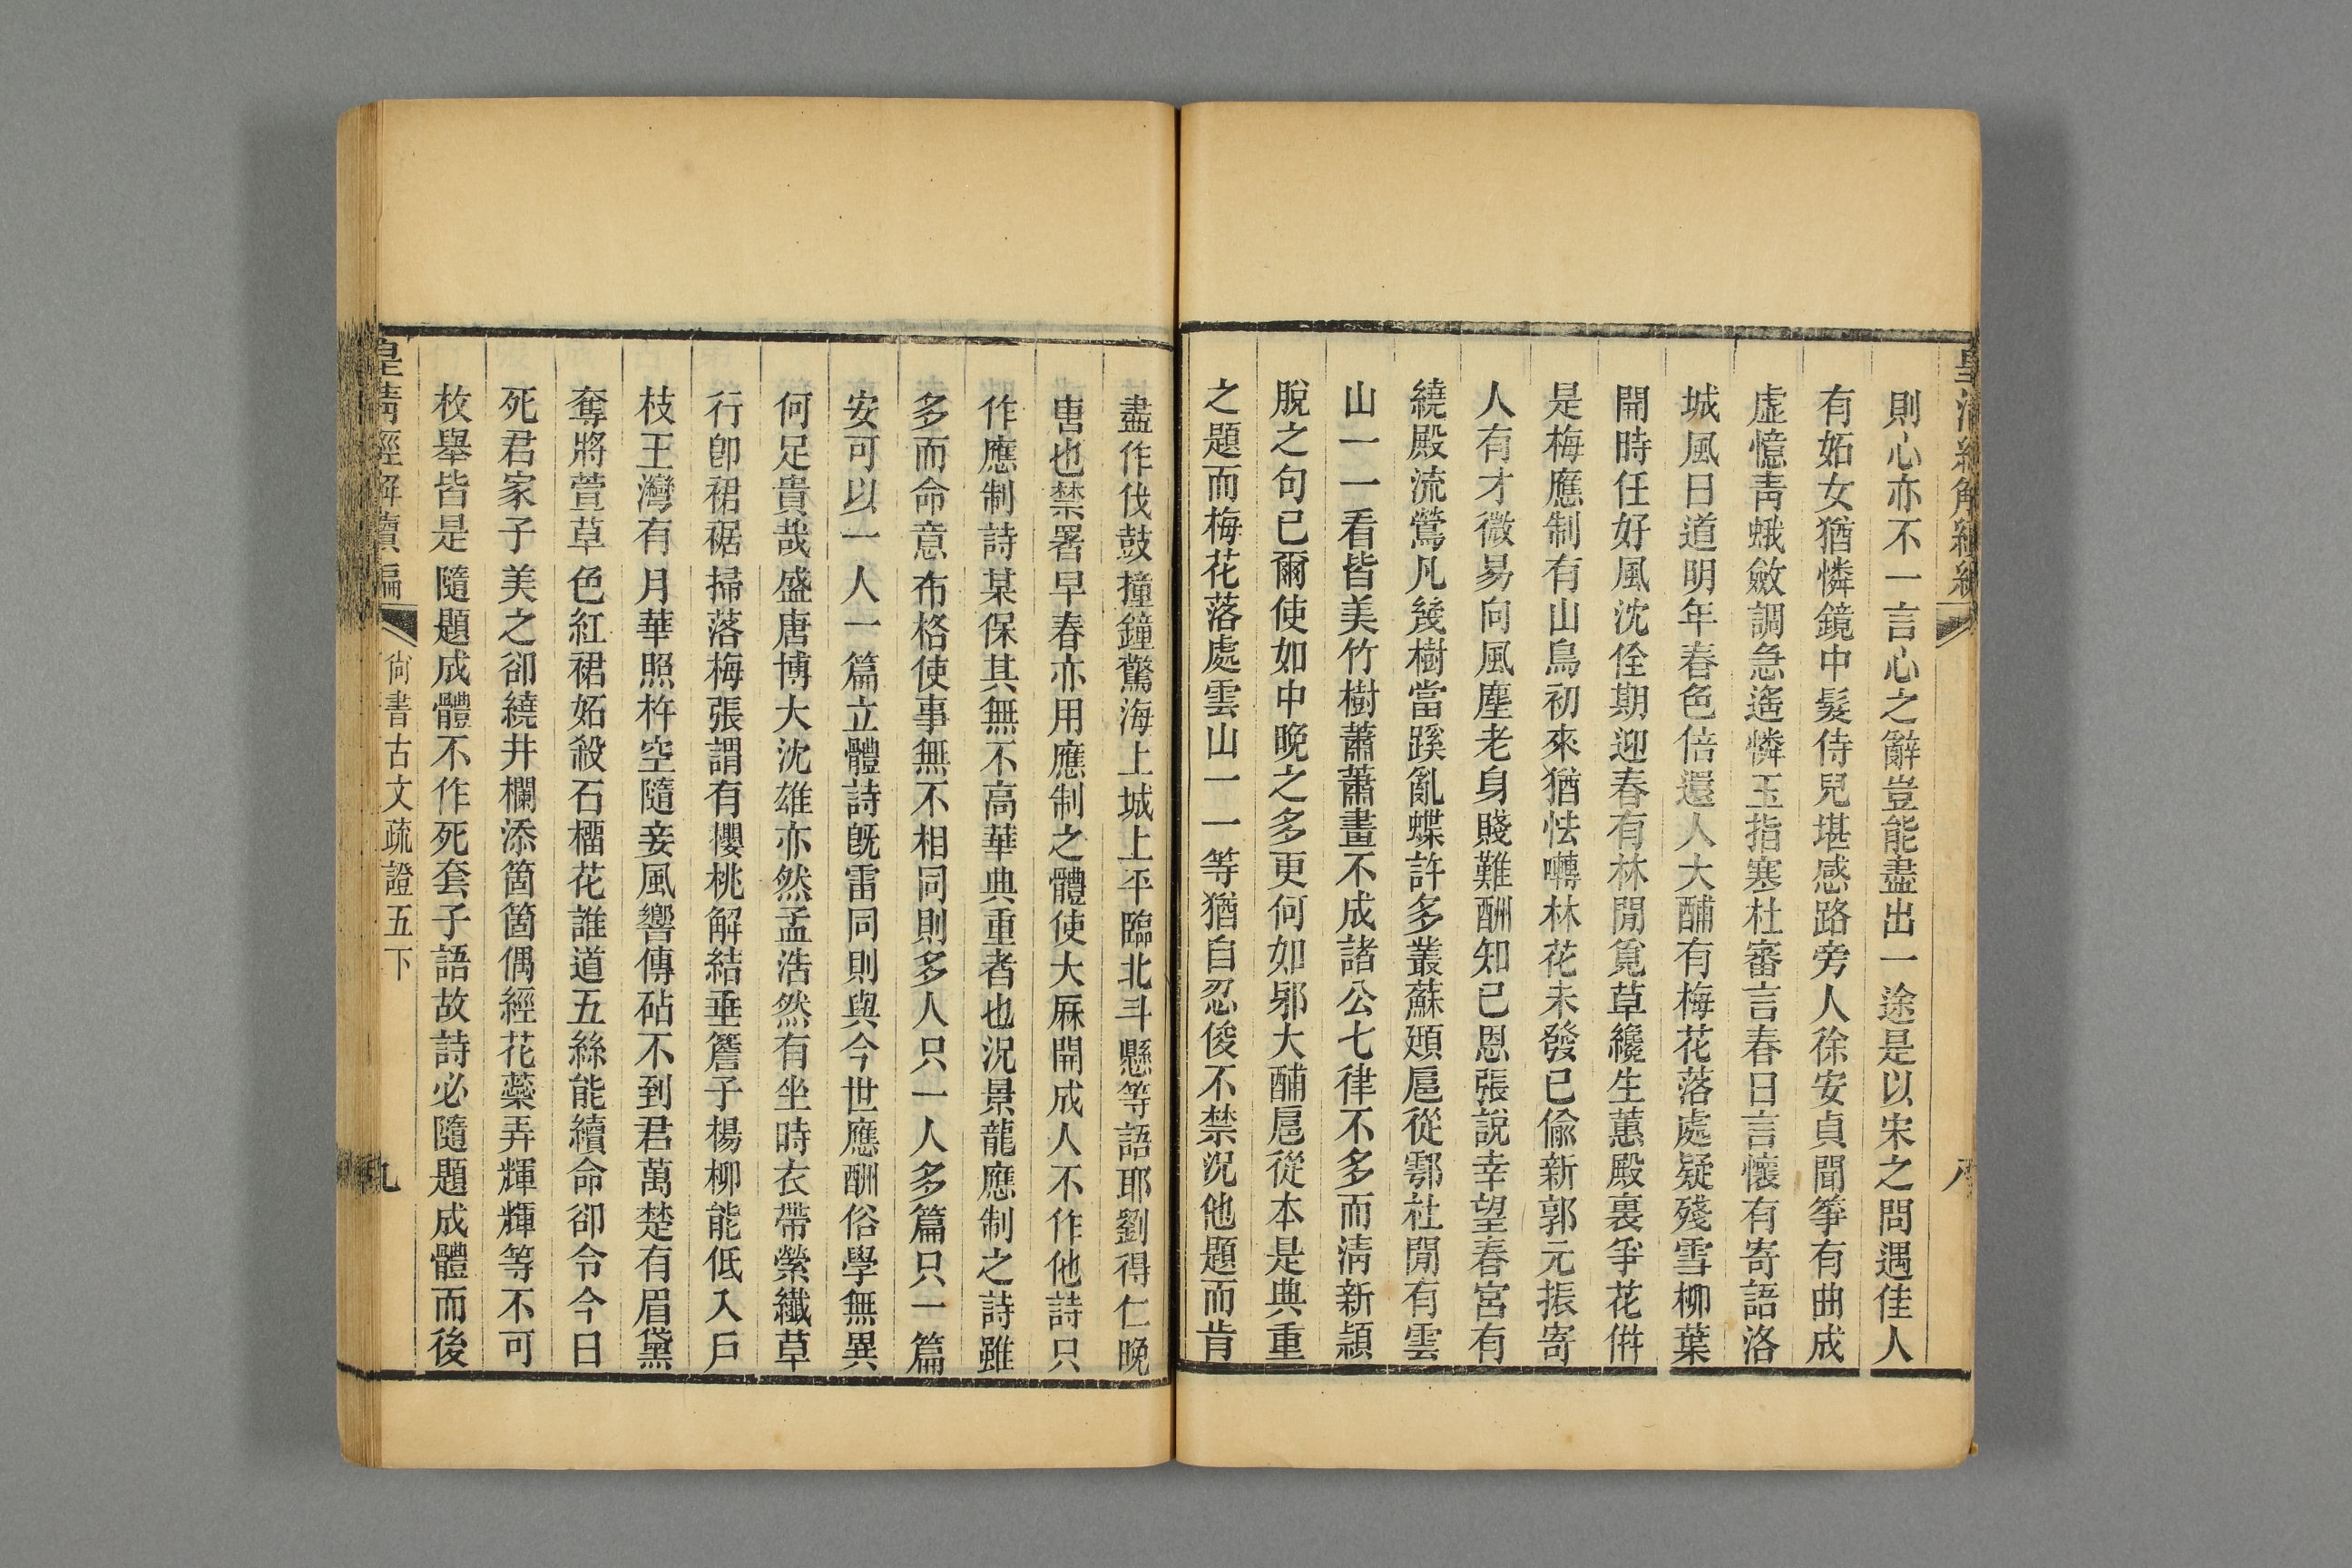 皇清經解續編
八
則心亦不一言心之辭豈能盡出一途是以宋之問遇佳人
有妬女猶憐鏡中髮侍兒堪感路旁人徐安貞聞筝有曲成
虛憶靑蛾斂調急遙憐玉指寒杜審言春日言懷有寄語洛
城風日道明年春色倍還人大酺有梅花落處疑殘雪柳葉
開時任好風沈佺期迎春有林閒覓草纔生蕙殿裏爭花倂
是梅應制有山鳥初來猶怯囀林花未發已偸新郭元振寄
人有才微易向風塵老身賤難酬知已恩張說幸望春宮有
繞殿流鶯凡幾樹當蹊亂蝶許多叢蘇頲扈從鄠社閒有雲
山一一看皆美竹樹蕭蕭畫不成諸公七律不多而淸新穎
脫之句已爾使如中晚之多更何如邪大酺扈從本是典重
之題而梅花落處雲山一一等猶自忍俊不禁況他題而肯
盡作伐鼓撞鐘驚海上城上平臨北斗懸等語耶劉得仁晚
唐也禁署早春亦用應制之體使大厤開成人不作他詩只
作應制詩某保其無不高華典重者也況景龍應制之詩雖
多而命意布格使事無不相同則多人只一人多篇只一篇
安可以一人一篇立體詩旣雷同則與今世應酬俗學無異
何足貴哉盛唐博大沈雄亦然孟浩然有坐時衣帶縈纖草
行卽裙裾掃落梅張謂有櫻桃解結垂簷子楊柳能低入戶
枝王灣有月華照杵空隨妾風響傳砧不到君萬楚有眉黛
奪將萱草色紅裙妬殺石榴花誰道五絲能續命卻令今日
死君家子美之卻繞井欄添箇箇偶經花蘂弄輝輝等不可
枚舉皆是隨題成體不作死套子語故詩必隨題成體而後
皇淸經解續編
尙書古文疏證五下
九